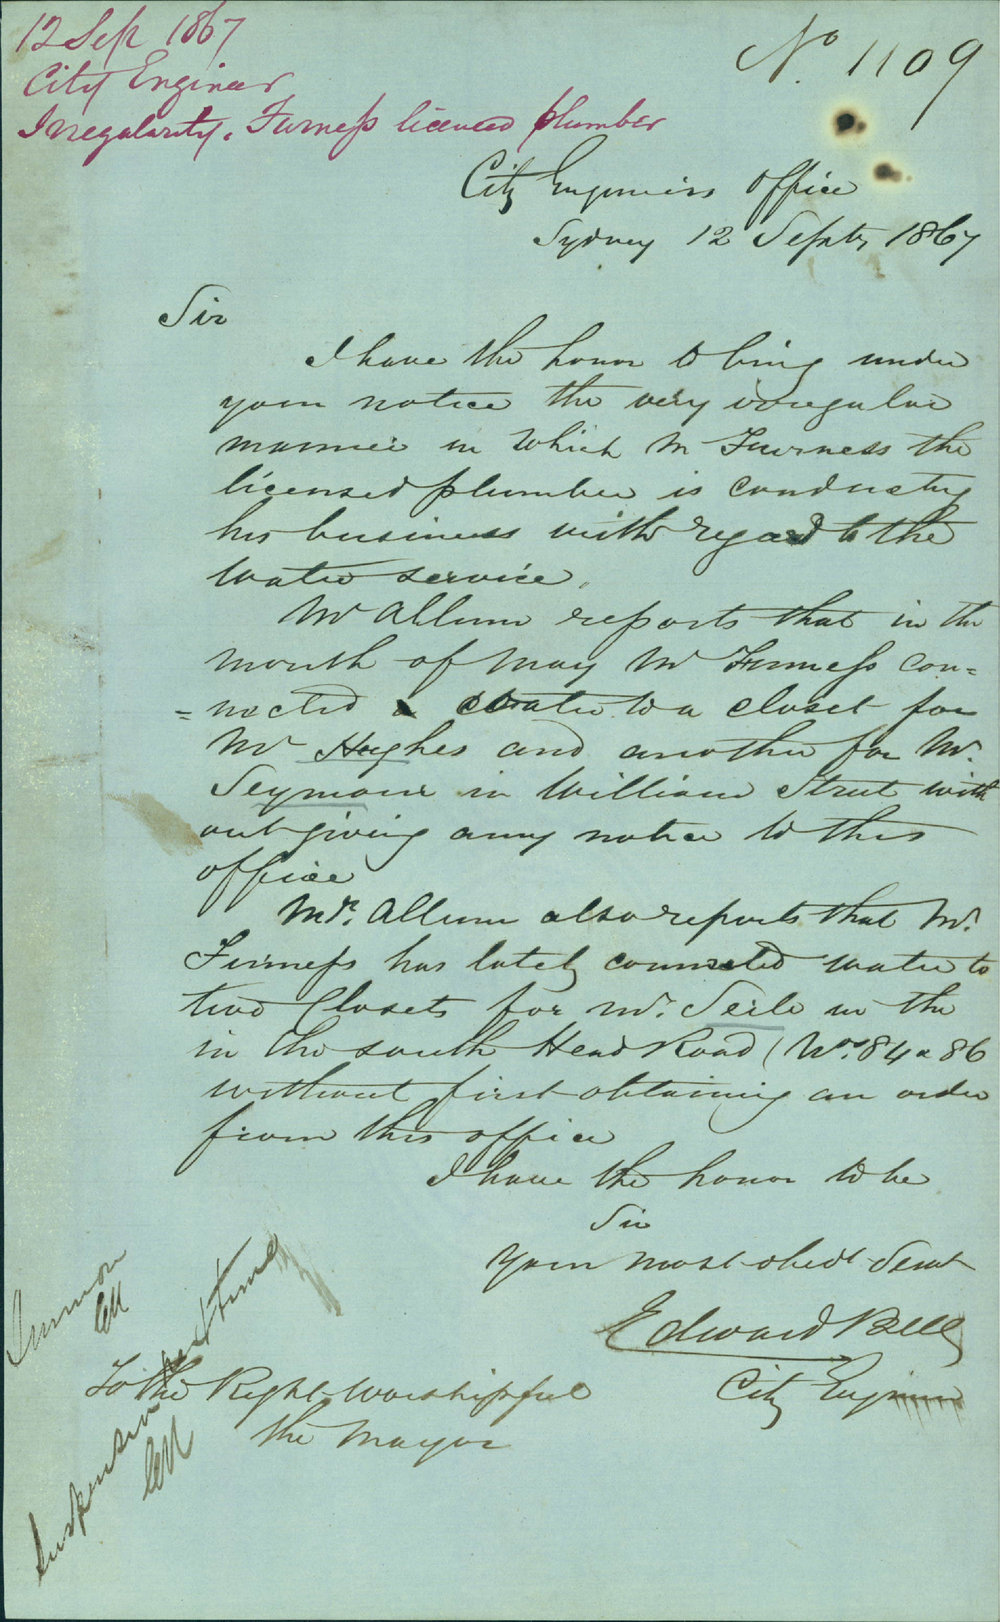 12 Sep 1867
City Engineer
Irregularity. Furness licensed plumber
No. 1109
City Engineers Office
Sydney 12 Septr 1867
Sir
I have the honor to bring under
your notice the very irregular
manner in which Mr Furness the
licensed plumber is conducting
his business with regard to the
water service.
Mr Allum reports that in the
month of May Mr Furness con=
=nected water to a closet for
Mr Hughes and another for Mr.
Seymour in William Street with
out giving any notice to this
office
Mr. Allum also reports that Mr.
Furness has lately connected water to
two Closets for Mr. Seile in the
in the South Head Road (Nos. 84 & 86
without first obtaining an order
from this office
I have the honor to be
Sir
Your most obedt Servt
Edward Bell
City Engineer
To the Right Worshipful
the Mayor
Summon
Suspension next time